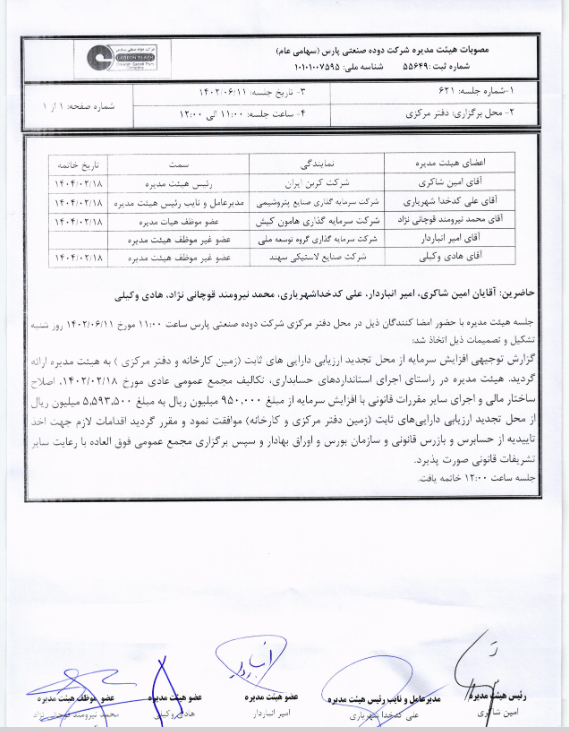 مصوبات هیئت مدیره شرکت دوده صنعتی پارس (سهامی عام)
شماره ثبت :۵۵۶۴۹ شناسه ملی: ۱۰۱۰۱۰۰۷۵۹۵
۱-شماره جلسه: ۶۲۱
۳- تاریخ جلسه: ۱۴۰۲/۰۶/۱۱
شماره صفحه: ۱ از ۱
۲- محل برگزاری: دفتر مرکزی
۴- ساعت جلسه: ۱۱:۰۰ الی ۱۲:۰۰
اعضای هیئت مدیره نمایندگی سمت تاریخ خاتمه
آقای امین شاکری شرکت کربن ایران رئیس هیئت مدیره ۱۴۰۴/۰۲/۱۸
آقای علی کدخدا شهریاری شرکت سرمایه گذاری صنایع پتروشیمی مدیرعامل و نایب رئیس هیئت مدیره ۱۴۰۴/۰۲/۱۸
آقای محمد نیرومند قوچانی نژاد شرکت سرمایه گذاری هامون کیش عضو موظف هیات مدیره ۱۴۰۴/۰۲/۱۸
آقای امیر انباردار شرکت سرمایه گذاری گروه توسعه ملی عضو غیر موظف هیئت مدیره ۱۴۰۴/۰۲/۱۸
آقای هادی وکیلی شرکت صنایع لاستیکی سهند عضو غیر موظف هیئت مدیره ۱۴۰۴/۰۲/۱۸
حاضرین: آقایان امین شاکری، امیر انباردار، علی کدخداشهریاری، محمد نیرومند قوچانی نژاد، هادی وکیلی
جلسه هیئت مدیره با حضور امضا کنندگان ذیل در محل دفتر مرکزی شرکت دوده صنعتی پارس ساعت ۱۱:۰۰ مورخ ۱۴۰۲/۰۶/۱۱ روز شنبه
تشکیل و تصمیمات ذیل اتخاذ شد:
گزارش توجیهی افزایش سرمایه از محل تجدید ارزیابی دارایی های ثابت (زمین کارخانه و دفتر مرکزی ) به هیئت مدیره ارائه
گردید. هیئت مدیره در راستای اجرای استانداردهای حسابداری، تکالیف مجمع عمومی عادی مورخ ۱۴۰۲/۰۲/۱۸، اصلاح
ساختار مالی و اجرای سایر مقررات قانونی با افزایش سرمایه از مبلغ ۹۵۰.۰۰۰ میلیون ریال به مبلغ ۵,۵۹۳,۵۰۰ میلیون ریال
از محل تجدید ارزیابی دارایی‌های ثابت (زمین دفتر مرکزی و کارخانه) موافقت نمود و مقرر گردید اقدامات لازم جهت اخذ
تاییدیه از حسابرس و بازرس قانونی و سازمان بورس و اوراق بهادار و سپس برگزاری مجمع عمومی فوق العاده با رعایت سایر
تشریفات قانونی صورت پذیرد.
جلسه ساعت ۱۲:۰۰ خاتمه یافت.
رئیس هیئت مدیره مدیرعامل و نایب رئیس هیئت مدیره عضو هیئت مدیره عضو هیئت مدیره عضو موظف هیئت مدیره
امین شاکری علی کدخدا شهریاری امیر انباردار هادی وکیلی محمد نیرومند قوچانی نژاد